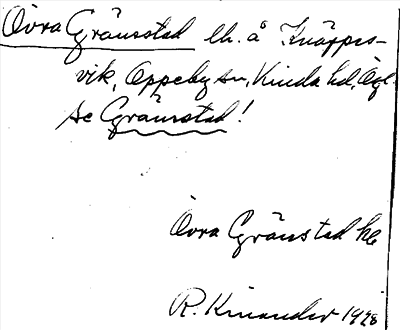 Övra Gränsstad lh. å Knäpps-
vik, Oppeby sn, Kinda hd, Ögl.
se Gränsstad!
Övra Gränstad hb
R. Kinander 1928